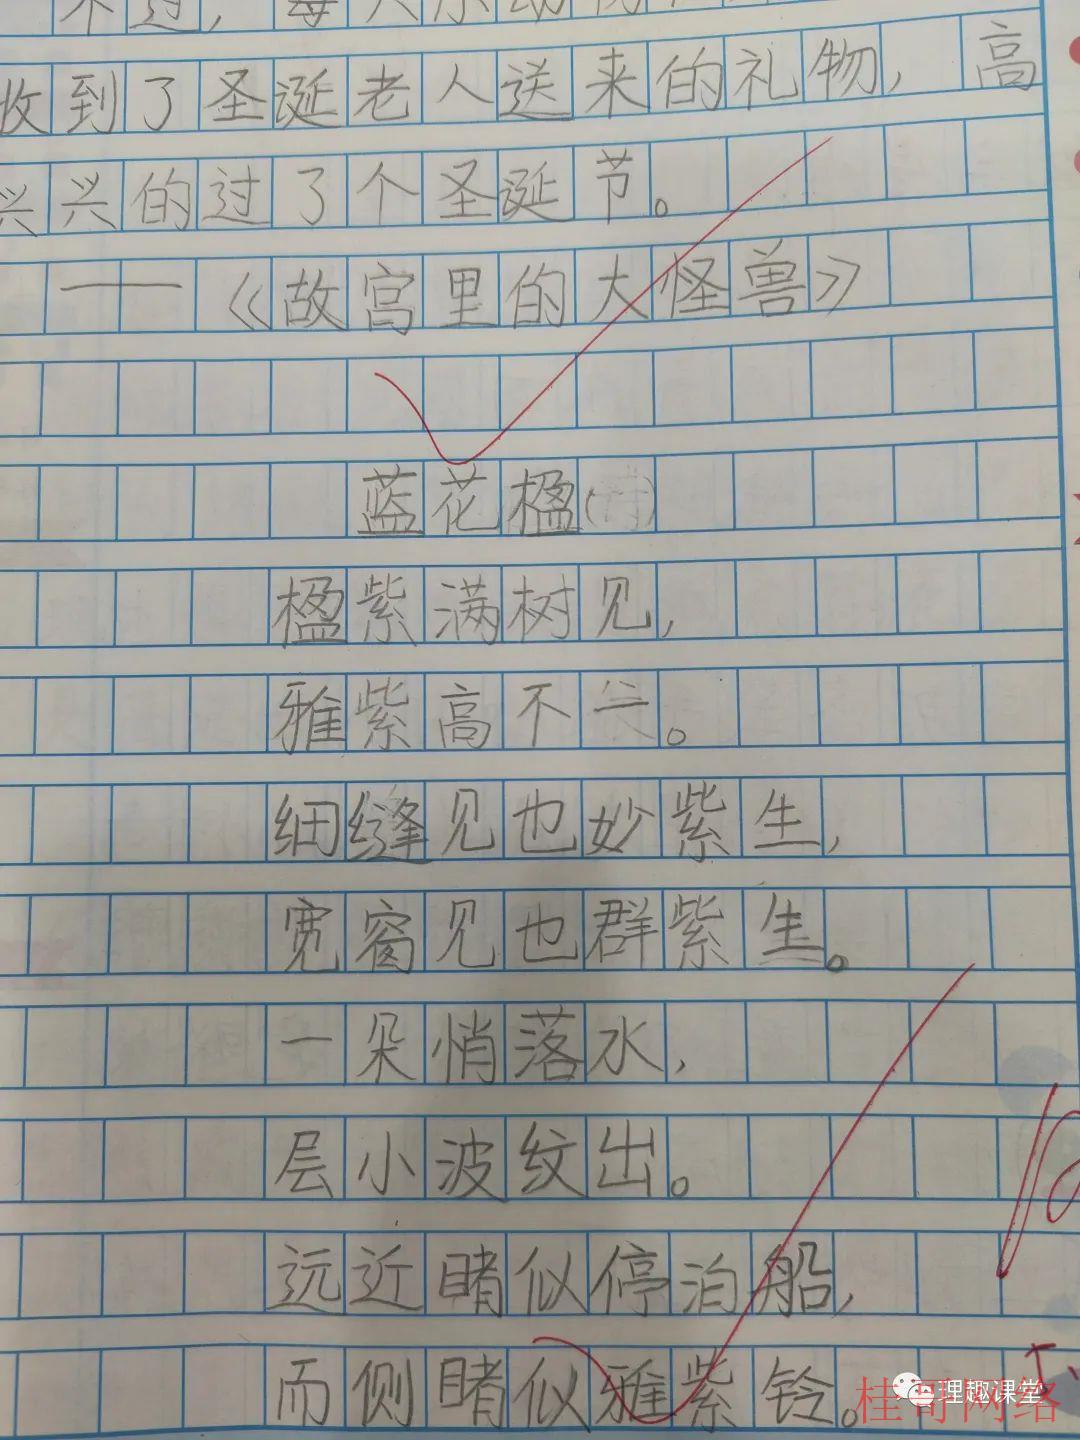 不过，每
收到了圣诞老人送来的礼物，高
兴兴的过了个圣诞节。
——《故宫里的大怪兽》
蓝花楹(诗)
楹紫满树见，
雅紫高不
细缝见也妙紫生，
宽窗见也群紫生。
一朵悄落水，
层小波纹出。
远近睹似停泊船，
而侧睹似雅紫铃。
理趣课堂
桂哥网络